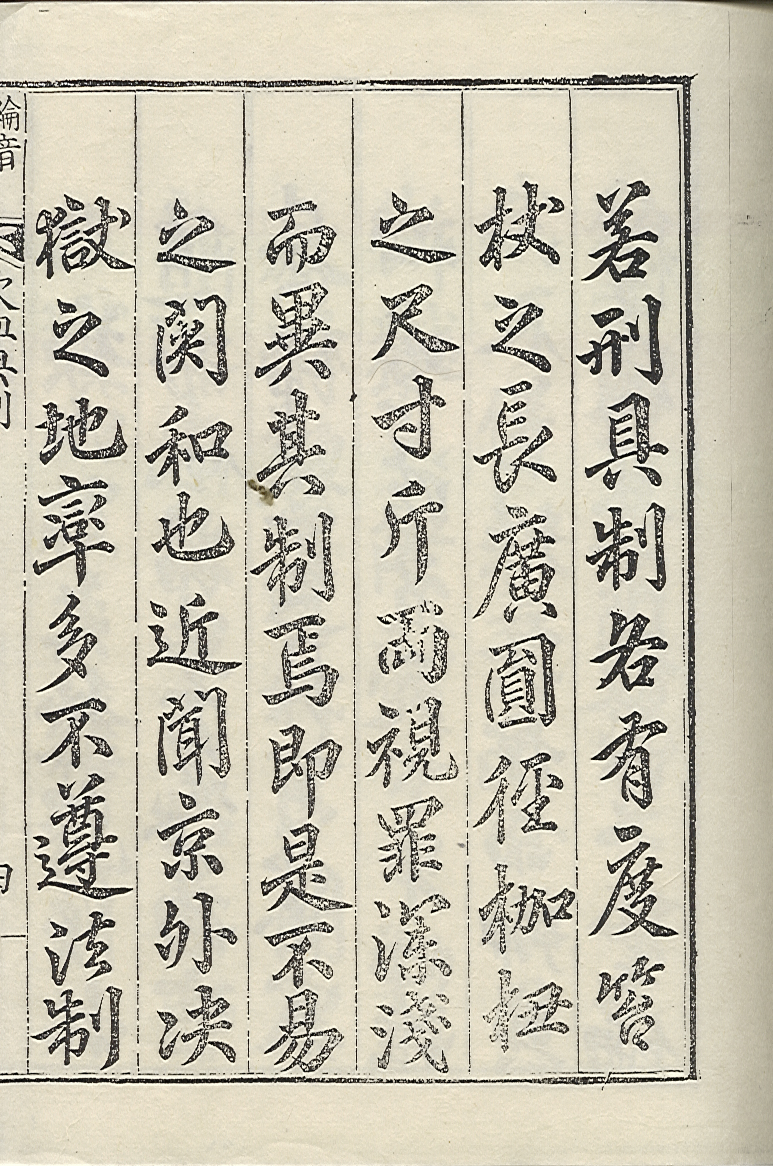 若刑具制各有度笞
杖之長廣圓徑枷杻
之尺寸斤兩視罪深淺
而異其制焉即是不易
之関和也近聞京外决
獄之地率多不遵法制
綸音